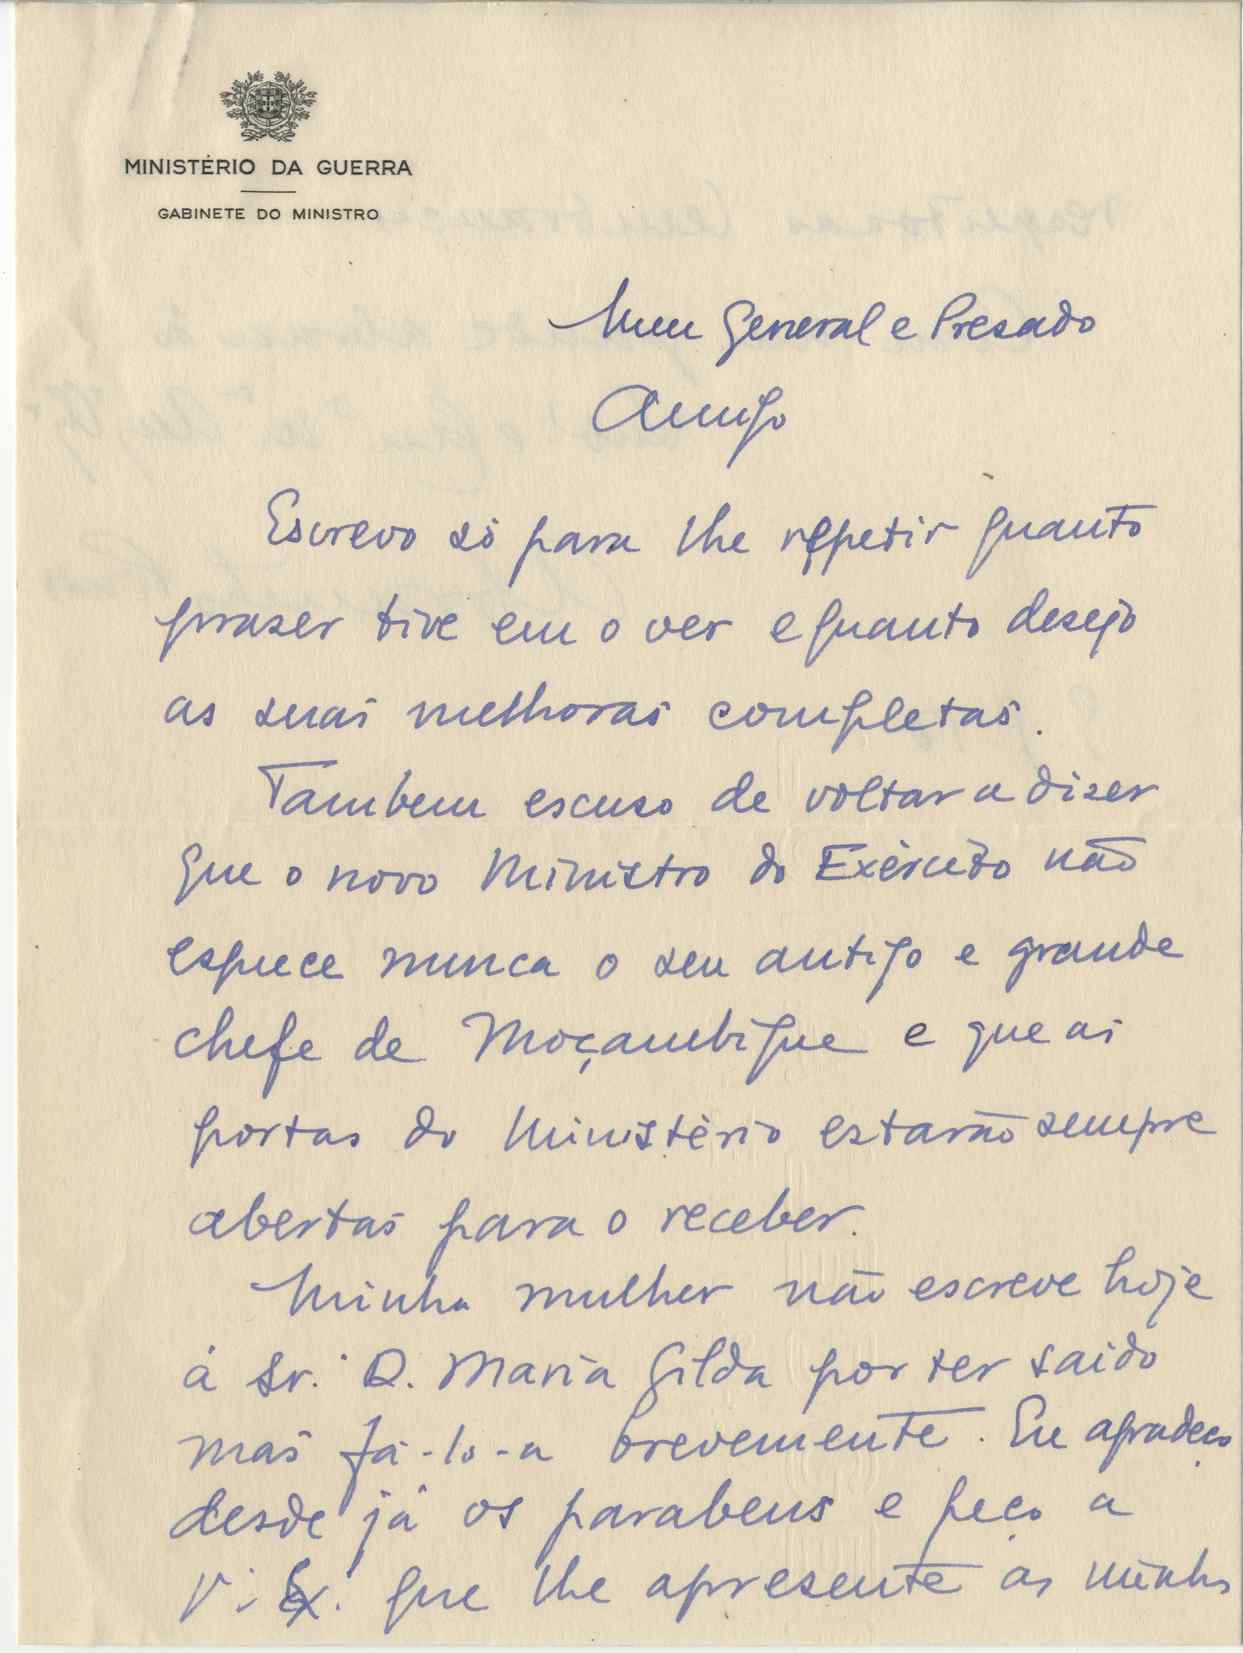 MINISTÉRIO DA GUERRA
GABINETE DO MINISTRO
Meu General e Presado
Amigo
Escrevo só para lhe repetir quanto
praser tive em o ver e quanto desejo
as suas melhoras completas.
Tambem escuso de voltar a diser
que o novo Ministro do Exército não
esquece nunca o seu antigo e grande
chefe de Moçambique e que as
portas do Ministério estarão sempre
abertas para o receber.
Minha mulher não escreve hoje
á Sr.ª D. Maria Gilda por ter saido
mas fá-lo-a brevemente. Eu agradeço
desde já os parabens e peço a
V. Ex.ª que lhe apresente as minhas